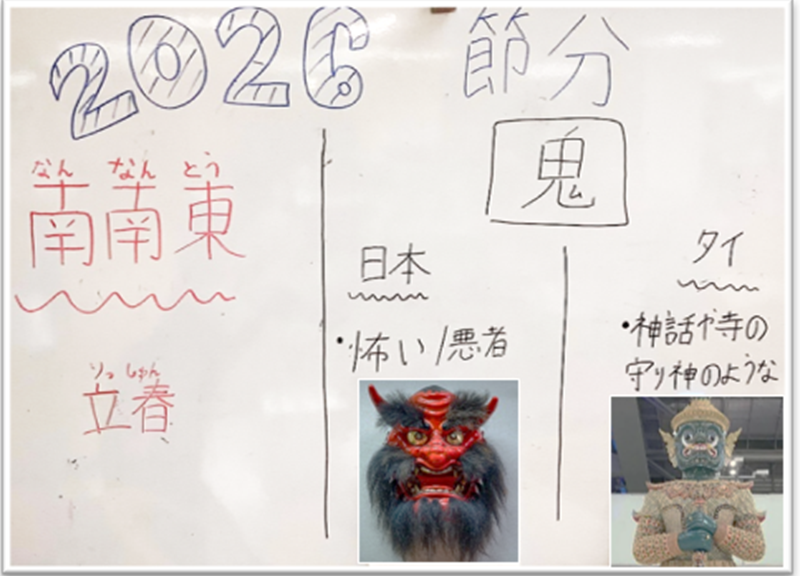 2026 節分
鬼
なん なん とう
南南東
りっ しゅん
立春
日本
・怖い/悪者
タイ
・神話や寺の
守り神のような